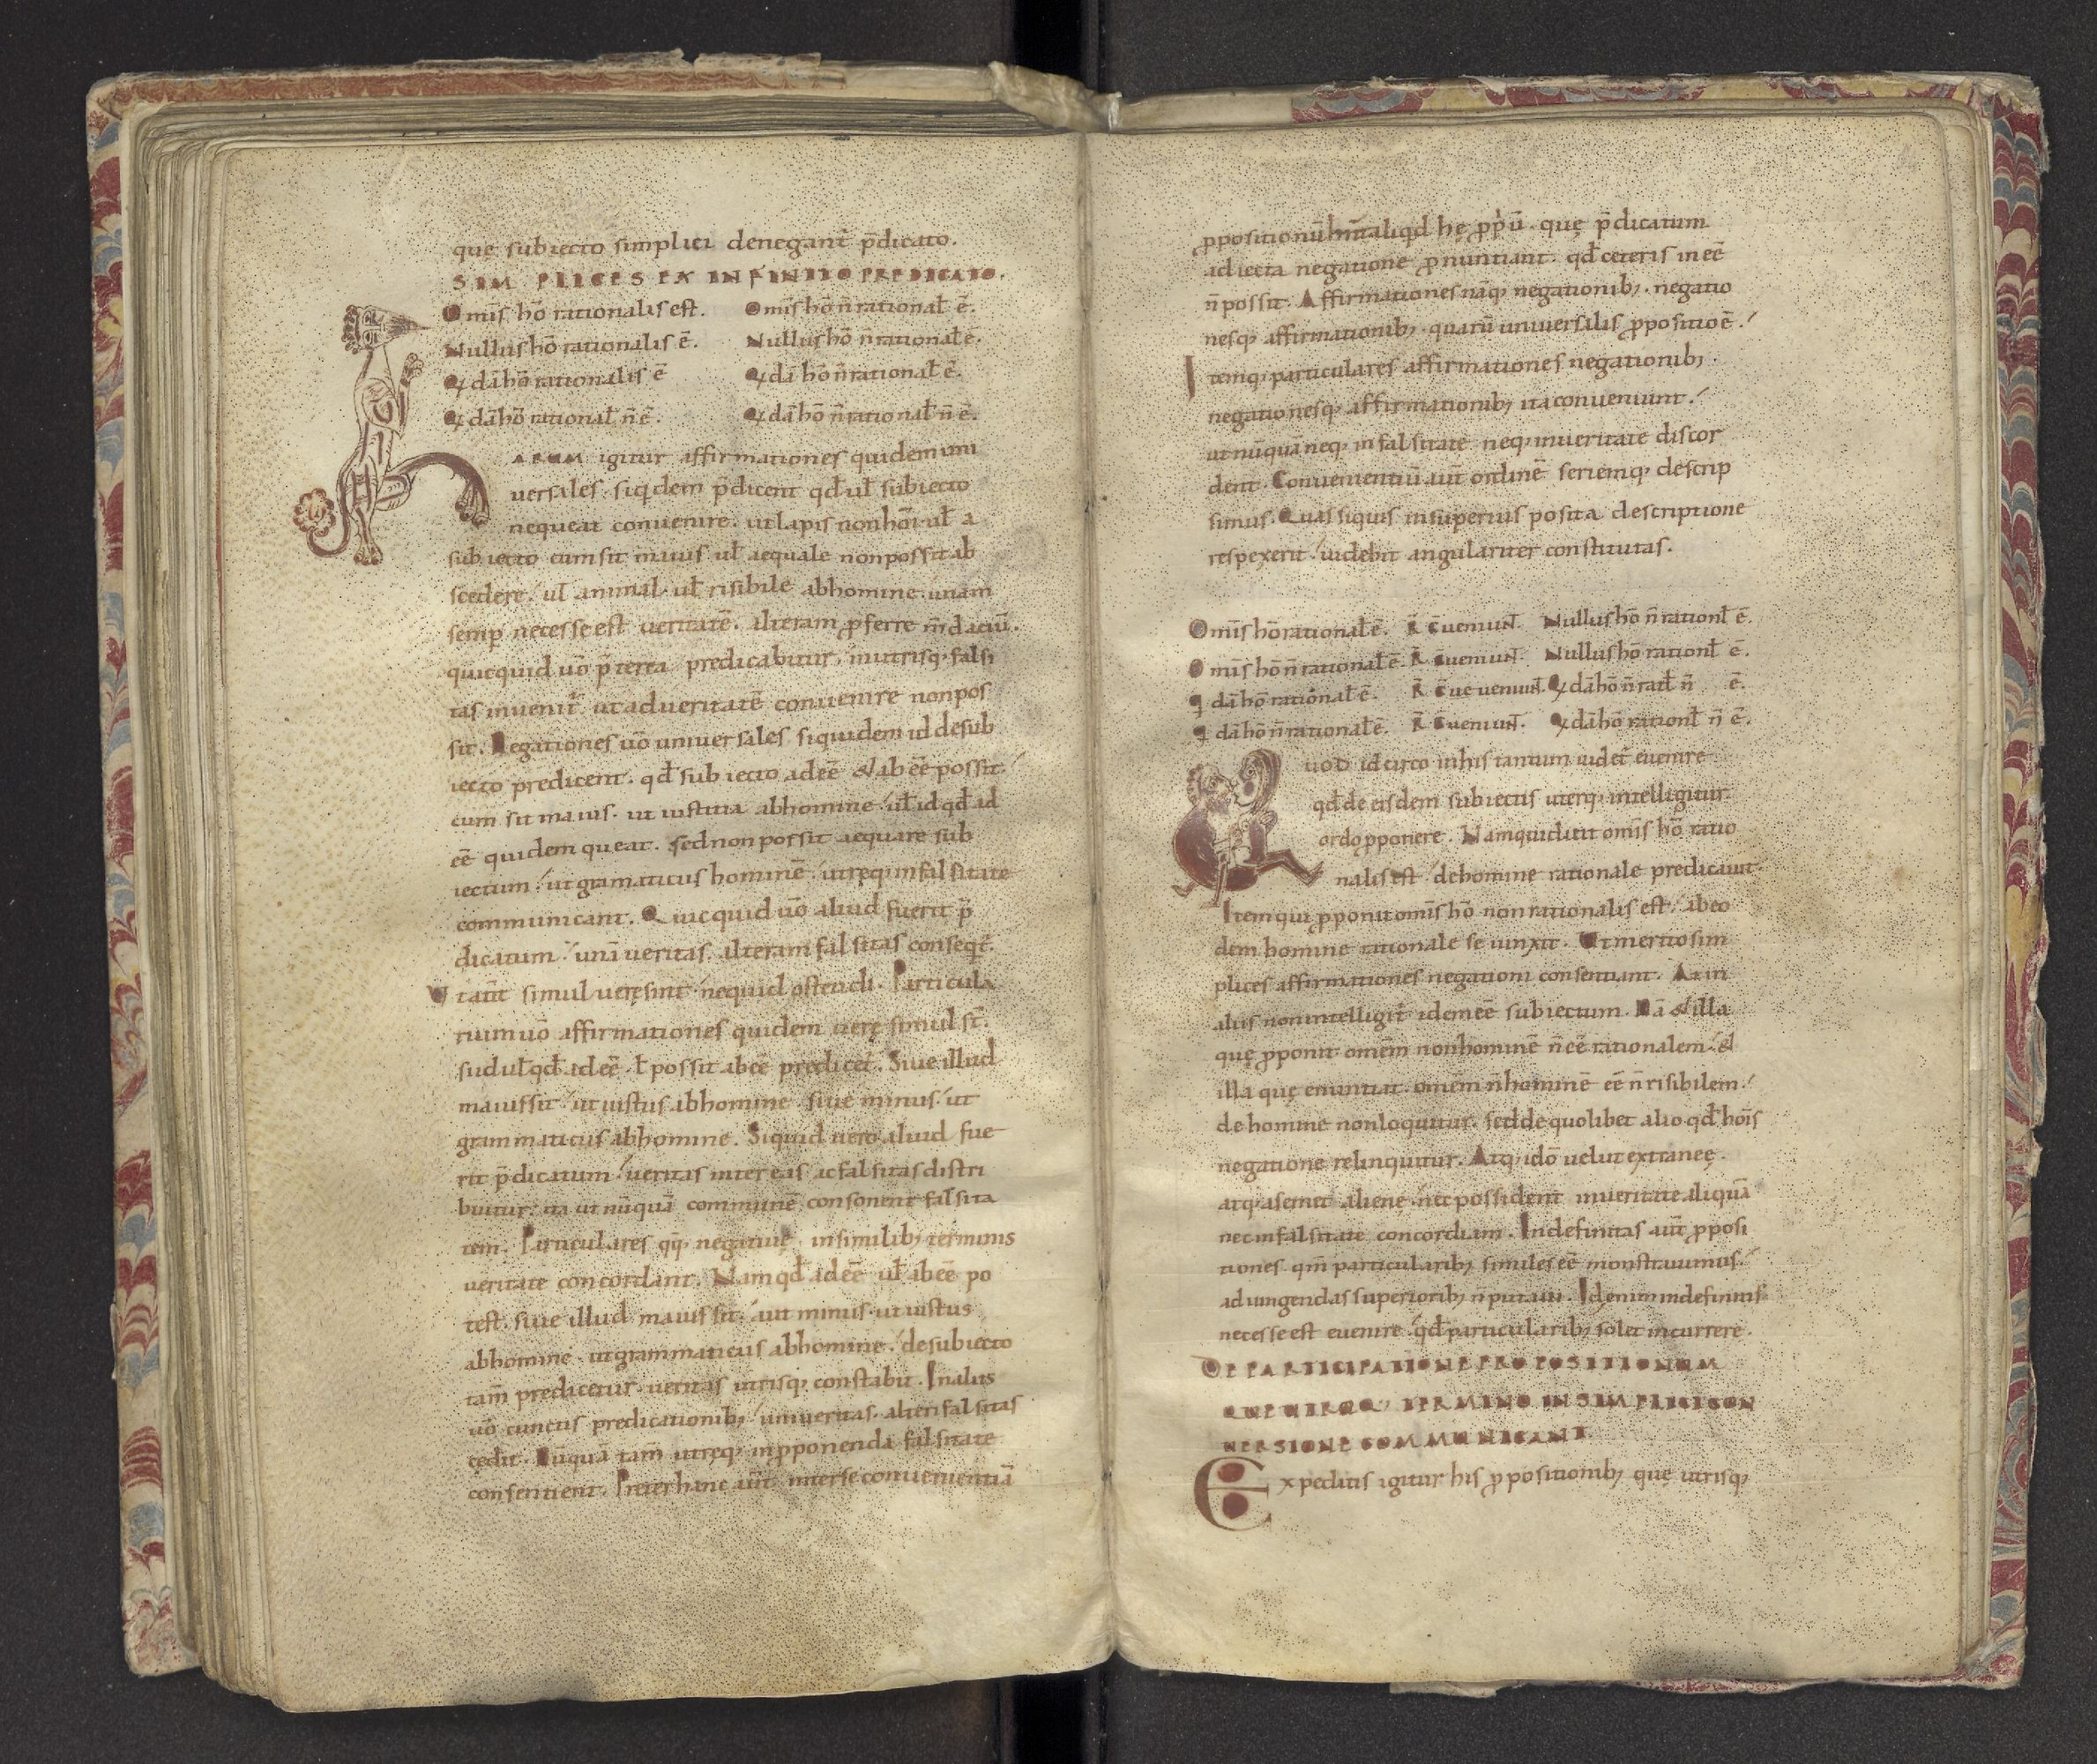 que subiecto simplici denegant̃ p̃dicato.
SIMPLICES EX INFINITO PREDICATO.
Omĩs hõ rationalis est. Omĩs hõ ñ rational̃ ẽ.
Nullus hõ rationalis ẽ. Nullus hõ ñ rational̃ ẽ.
Qdã hõ rationalis ẽ Qdã hõ ñ rational̃ ẽ.
Qdã hõ rational̃ ñ ẽ. Qdã hõ ñ rational̃ ñ ẽ.
HARUM igitur affirmationes quidem uni
uersales. siqdem p̃dicent qđ ul̃ subiecto
nequeat conuenire. ut lapis non hõi. ul̃ a
subiecto cum sit maius ul̃ aequale non possit ab
scedere. ul̃ animal. ul̃ risibile ab homine. unam
semp necesse est ueritatẽ. alteram pferre m̃daciũ.
quicquid uõ p̃terea predicabitur. in utrisq; falsi
tas inuenit̃. ut ad ueritatẽ conuenire non pos
sit. Negationes uõ uniuersales siquidem id de sub
iecto predicent. qđ subiecto adeẽ & abeẽ possit.
cum sit maius. ut iustitia ab homine. ul̃ id qđ id
eẽ quidem queat. sed non possit aequare sub
iectum. ut gramaticus hominẽ. utręq; in falsitate
communicant. Quicquid uõ aliud fuerit p̃
dicatum. uni ueritas. alteram falsitas conseqt̃.
Vt aut̃ simul uerę sint nequid ostendi. Particula
rium uõ affirmationes quidem uerę simul st̃.
sud ul̃ qđ adeẽ. l̃ possit abeẽ predicet̃. Siue illud
maius sit. ut iustus ab homine. siue minus. ut
grammaticus ab homine. Siquid uero aliud fue
rit p̃dicatum. ueritas inter eas ac falsitas distri
buitur. ita ut nũquã communẽ consonent falsita
tem. Particulares qq; negatiuę. in similib; terminis
ueritate concordant. Nam qđ adeẽ ul̃ abeẽ po
test. siue illud maius sit. aut minus. ut iustus
ab homine. ut grammaticus ab homine. de subiecto
tam̃ predicetur. ueritas utrisq; constabit. In aliis
uõ cunctis predicationib; uni ueritas. alteri falsitas
cedit. Nũquã tam̃ utręq; in pponenda falsitate
consentient. Preter hanc aut̃ inter se conuenientiã
ppositionũ aliqd hę pp̃iũ. quę p̃dicatum
adiecta negatione pnuntiant. qđ ceteris ineẽ
ñ possit. Affirmationes nãq; negationib;. negatio
nesq; affirmationib;. quarũ uniuersalis ppositio ẽ.
Itemq; particulares affirmationes negationib;.
negationesq; affirmationib; ita conueniunt.
ut nũquã neq; in falsitate neq; in ueritate discor
dent. Conuenientiũ aut̃ ordinẽ seriemq; descrip
simus. Quas siquis in superius posita descriptione
respexerit. uidebit angulariter constitutas.
Omĩs hõ rational̃ ẽ. R̃ c̃ueniunt̃. Nullus hõ ñ rationl̃ ẽ.
Omĩs hõ ñ rational̃ ẽ. R̃ c̃ueniunt̃. Nullus hõ rationl̃ ẽ.
Qdã hõ rational̃ ẽ. R̃ c̃ueueniunt̃. Qdã hõ ñ ratl̃ ñ ẽ.
Qdã hõ ñ rational̃ ẽ. R̃ c̃ueniunt̃. Qdã hõ rationl̃ ñ ẽ.
QUOD idcirco in his tantum uidet̃ euenire
qđ de eisdem subiectis uterq; intelligitur
ordo pponere. Nam qui dicit omĩs hõ ratio
nalis est. de homine rationale predicauit.
Item qui pponit omĩs hõ non rationalis est. ab eo
dem homine rationale seiunxit. Vt merito sim
plices affirmationes negationi consentiant. At in
aliis non intelligit̃ idem eẽ subiectum. Nã & illa
quę pponit omẽm non hominẽ ñ eẽ rationalem. &
illa quę enuntiat. omẽm ñ hominẽ eẽ ñ risibilem.
de homine non loquitur. sed de quolibet alio qđ hõis
negatione relinquitur. Atq; idõ uelut extraneę.
atq; a semet alienę. nec possident in ueritate aliquã
nec in falsitate concordiam. Indefinitas aut̃ pposi
tiones. qm̃ particularib; similes eẽ monstrauimus.
adiungendas superiorib; ñ putaui. Id enim indefinitis
necesse est euenire. qđ particularib; solet incurrere.
DE PARTICIPATIONE PROPOSITIONUM
QUE UTROQ; TERMINO IN SIMPLICI CON
UERSIONE COMMUNICANT.
Expeditis igitur his ppositionib; quę utrisq;